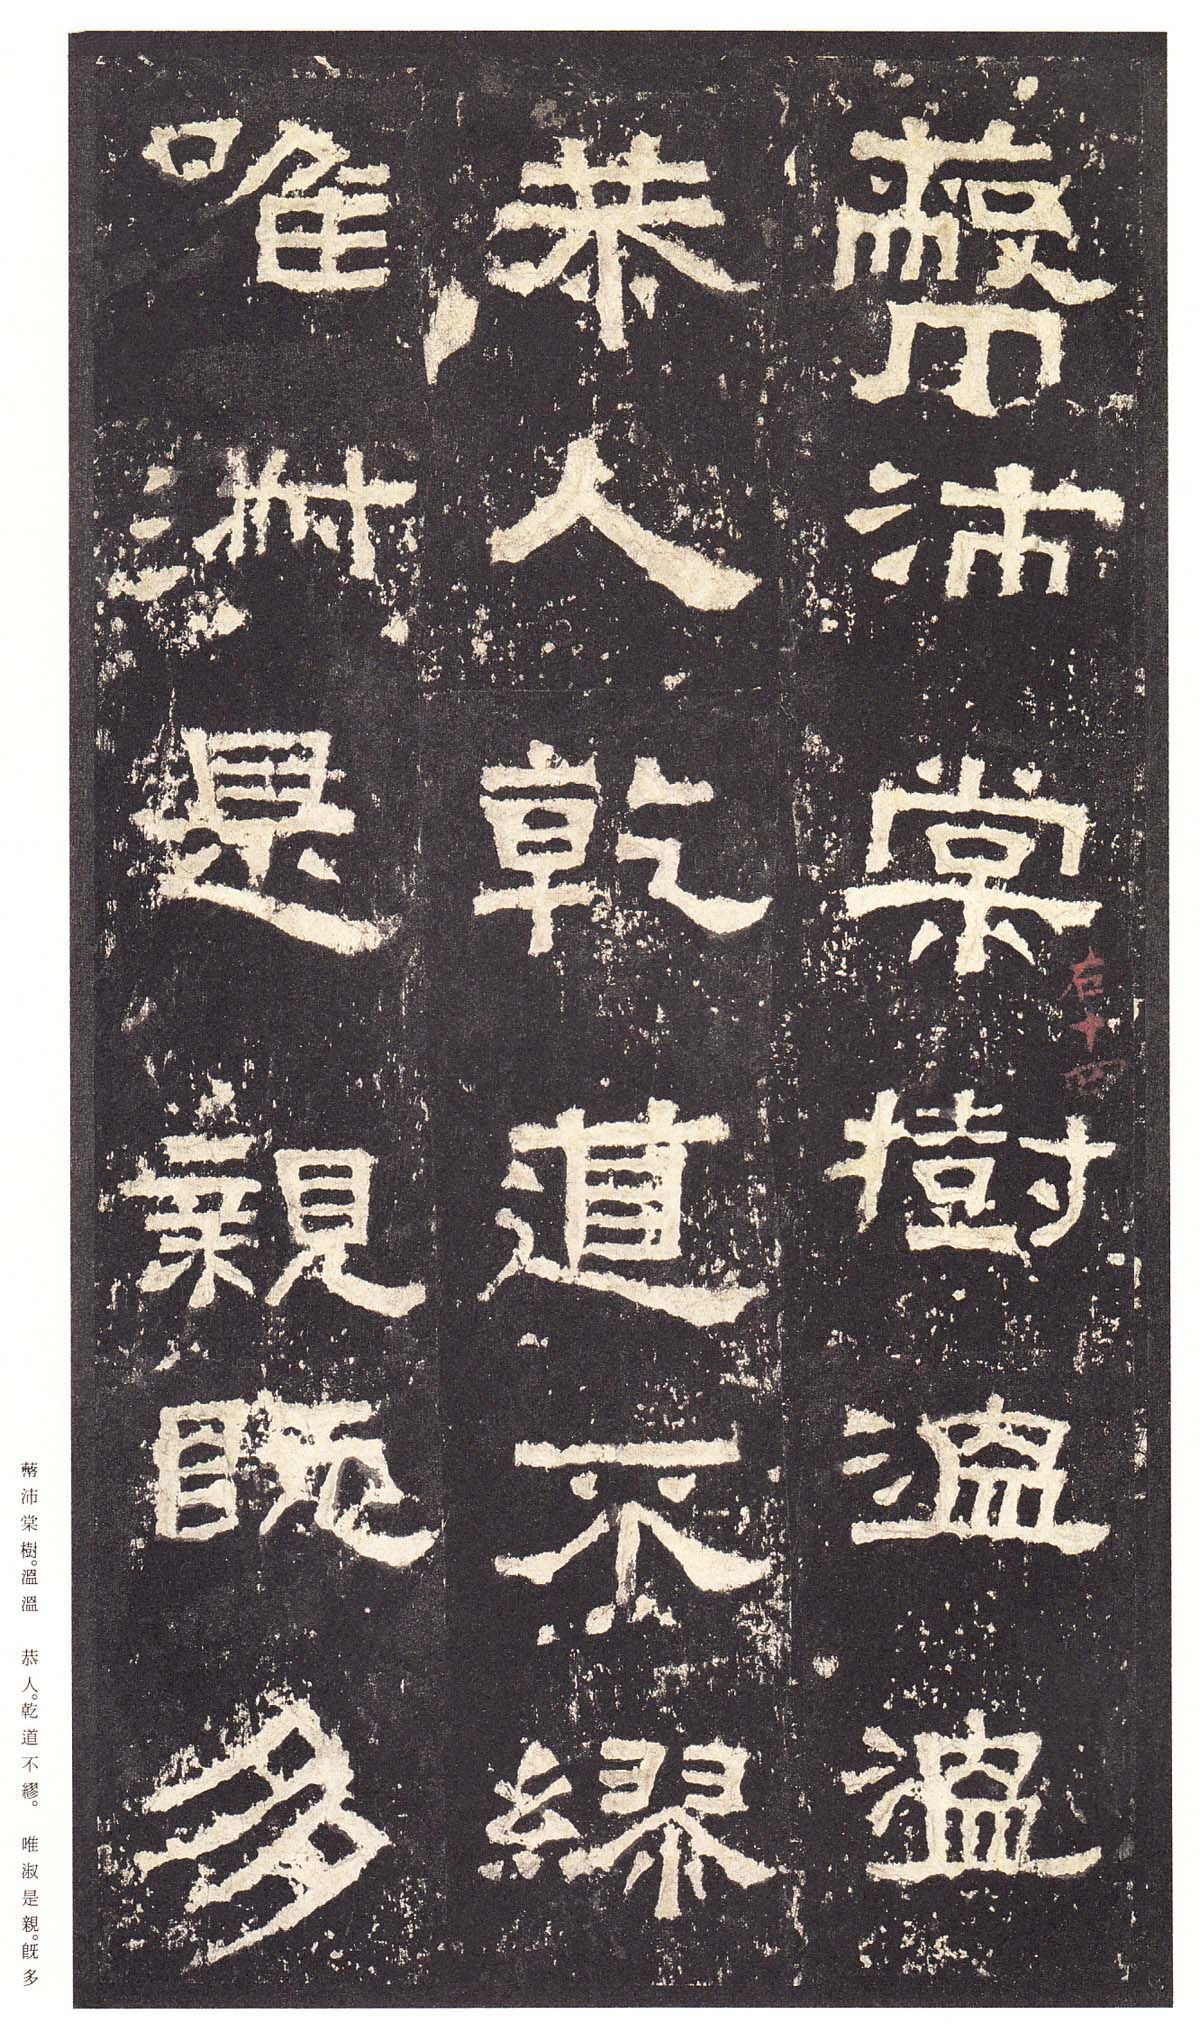 蔽沛棠樹溫溫
恭人乾道不繆
唯淑是親既多
右十四
蔽沛棠樹。溫溫 恭人。乾道不繆。 唯淑是親。既多